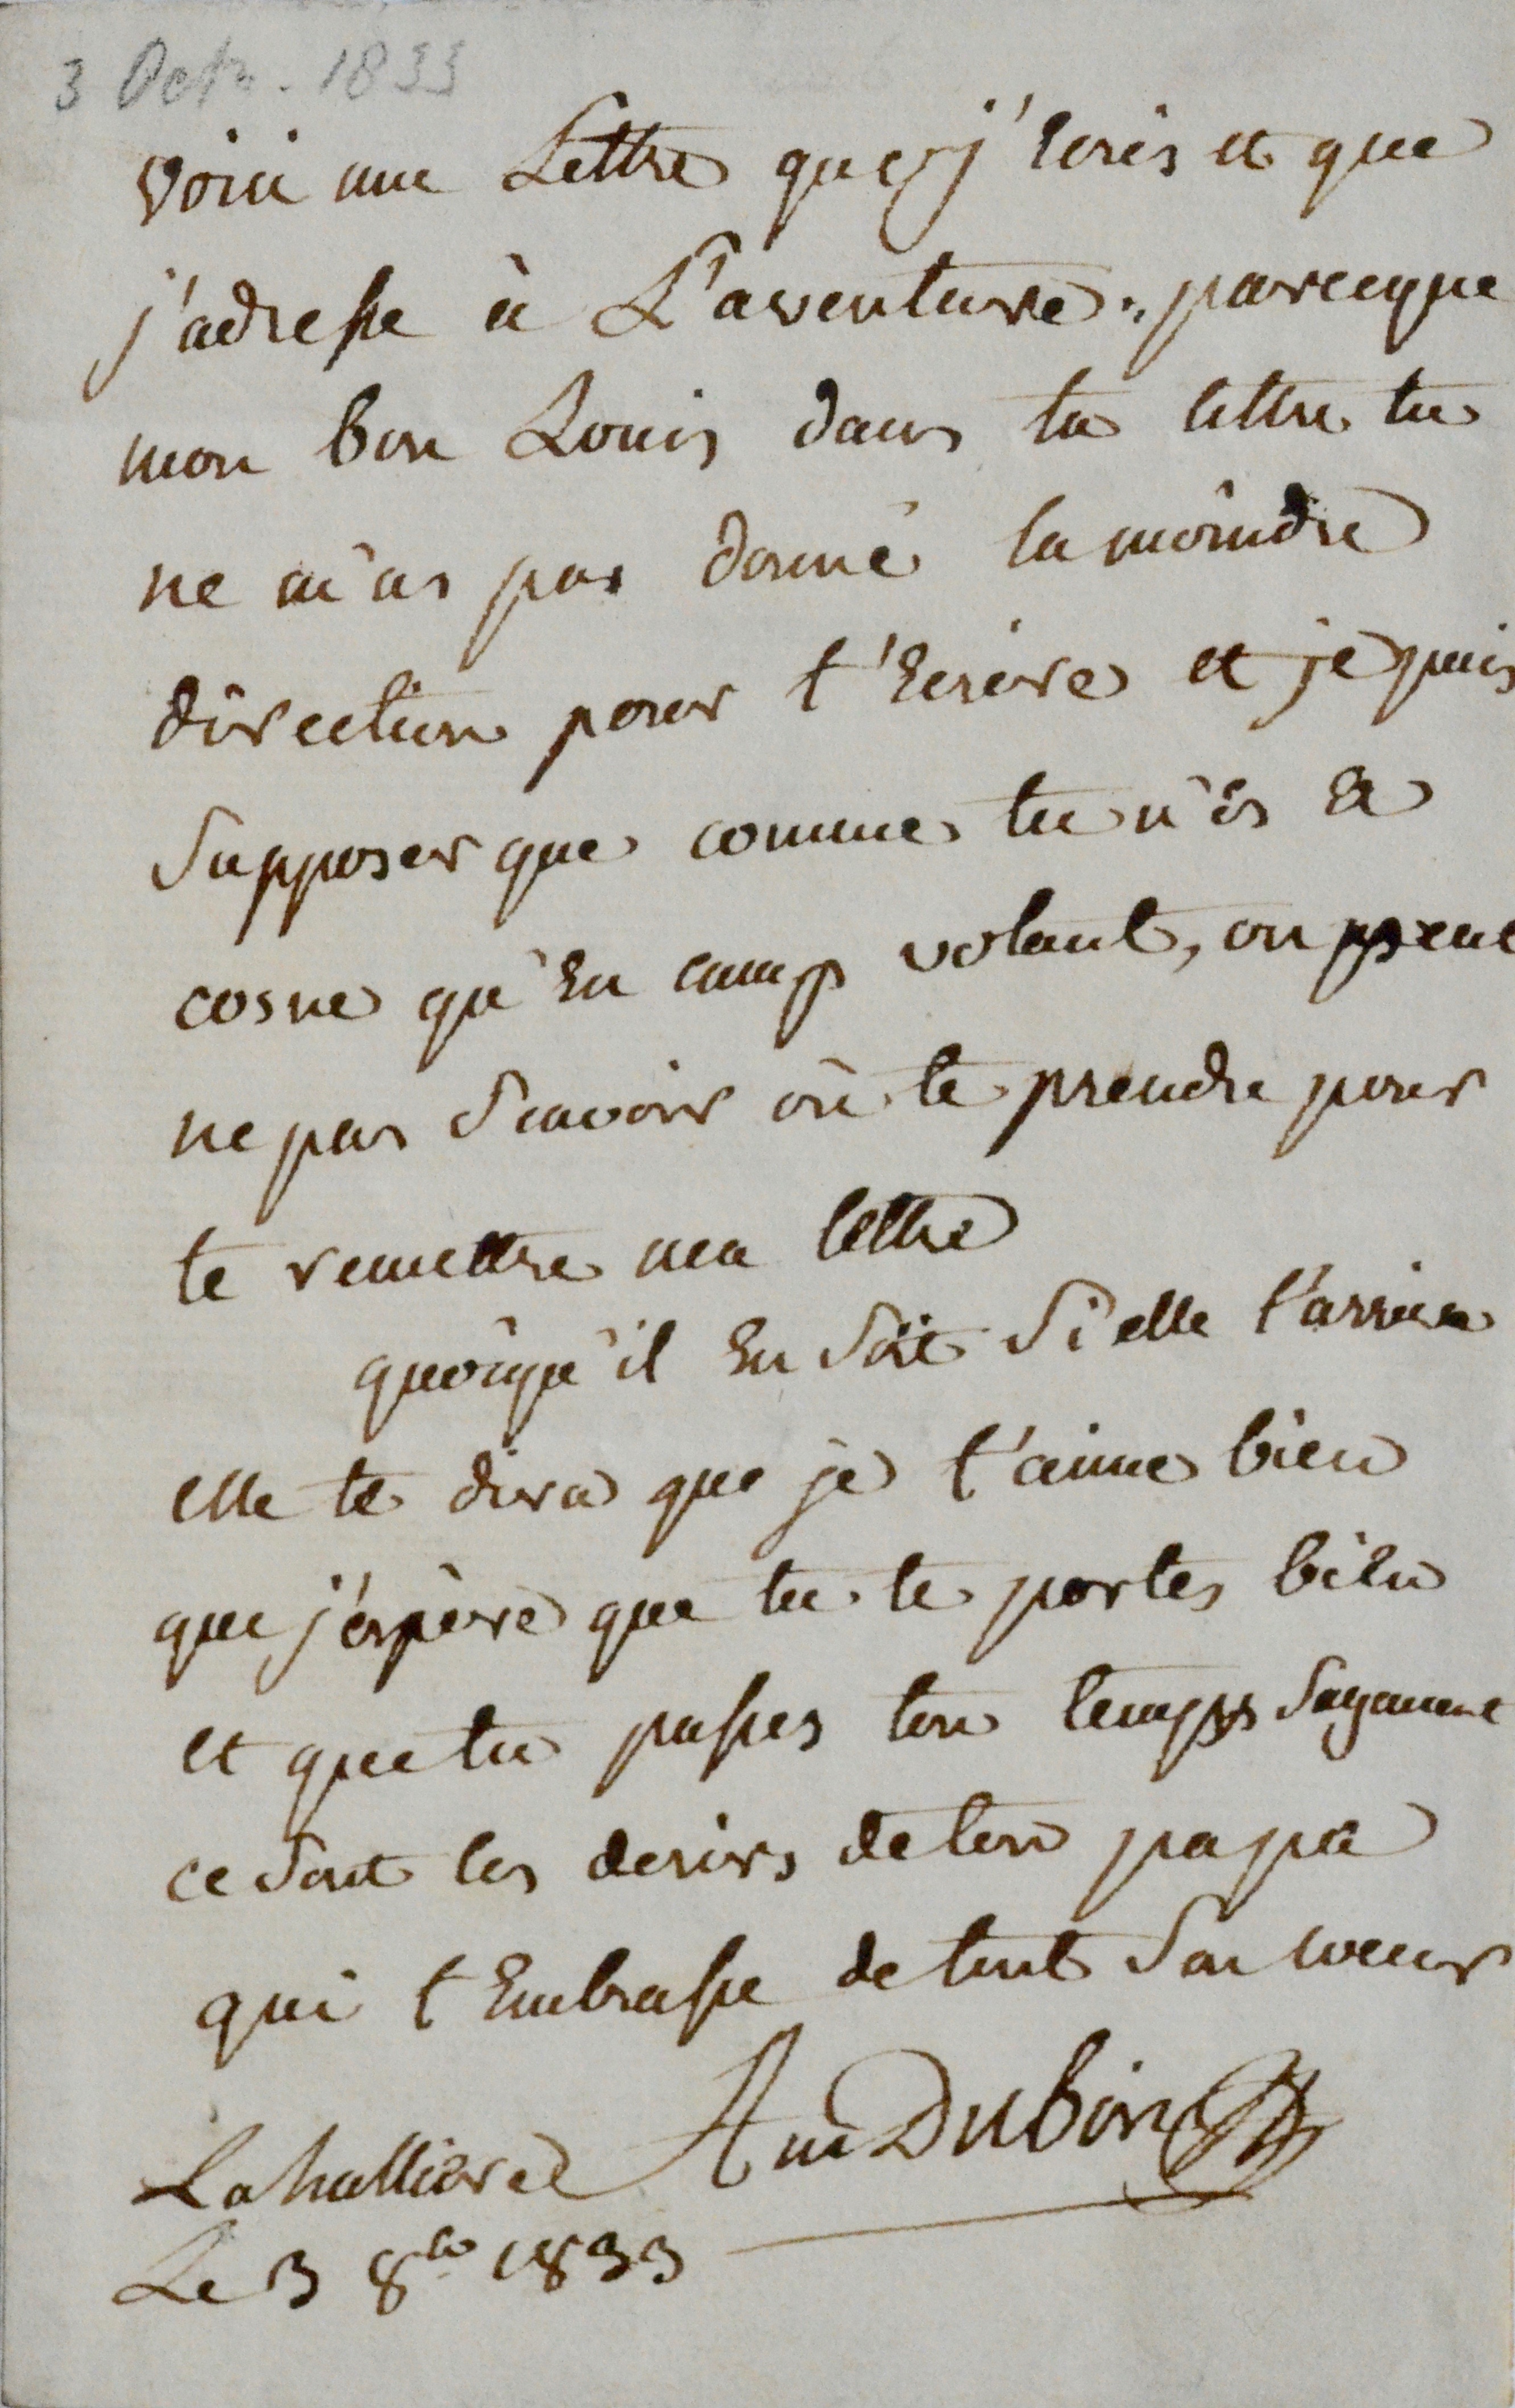 3 Octr. 1833
voici une Lettre que j'écris et que
j'adresse à L'aventure. parceque
mon bon Louis dans ta lettre tu
ne m'as pas donné la moindre
direction pour t'Ecrire et je puis
Supposer que comme tu n'és a
cosne qu'En camp volant, on peut
ne pas Scavoir où te prendre pour
te remettre ma lettre
quoiqu'il En Soit Si elle t'arrive
elle te dira que je t'aime bien
que j'éspère que tu te portes biEn
et que tu passes ton temps Sagement
ce Sont les desirs de ton papa
qui t'Embrasse de tout Son coeur
DuBois
Lahallierre
Le 3 8bre 1833